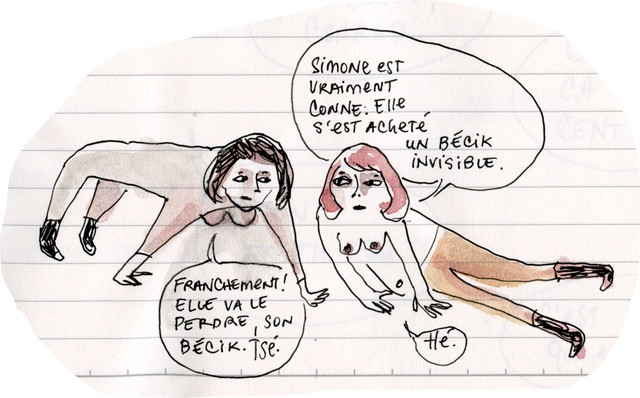 SIMONE EST
VRAIMENT
CONNE. ELLE
S'EST ACHETÉ
UN BÉCIK
INVISIBLE.
FRANCHEMENT!
ELLE VA LE
PERDRE, SON
BÉCIK. TSÉ.
HÉ.